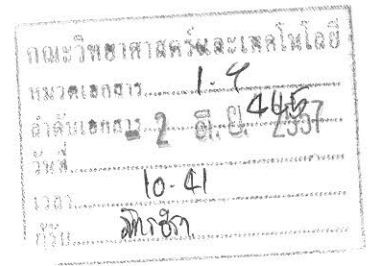 คณะวิทยาศาสตร์และเทคโนโลยี
หมวดเอกสาร
ลำดับเอกสาร 445
วันที่ - 2 2537
เวลา 10-41
ผู้รับ